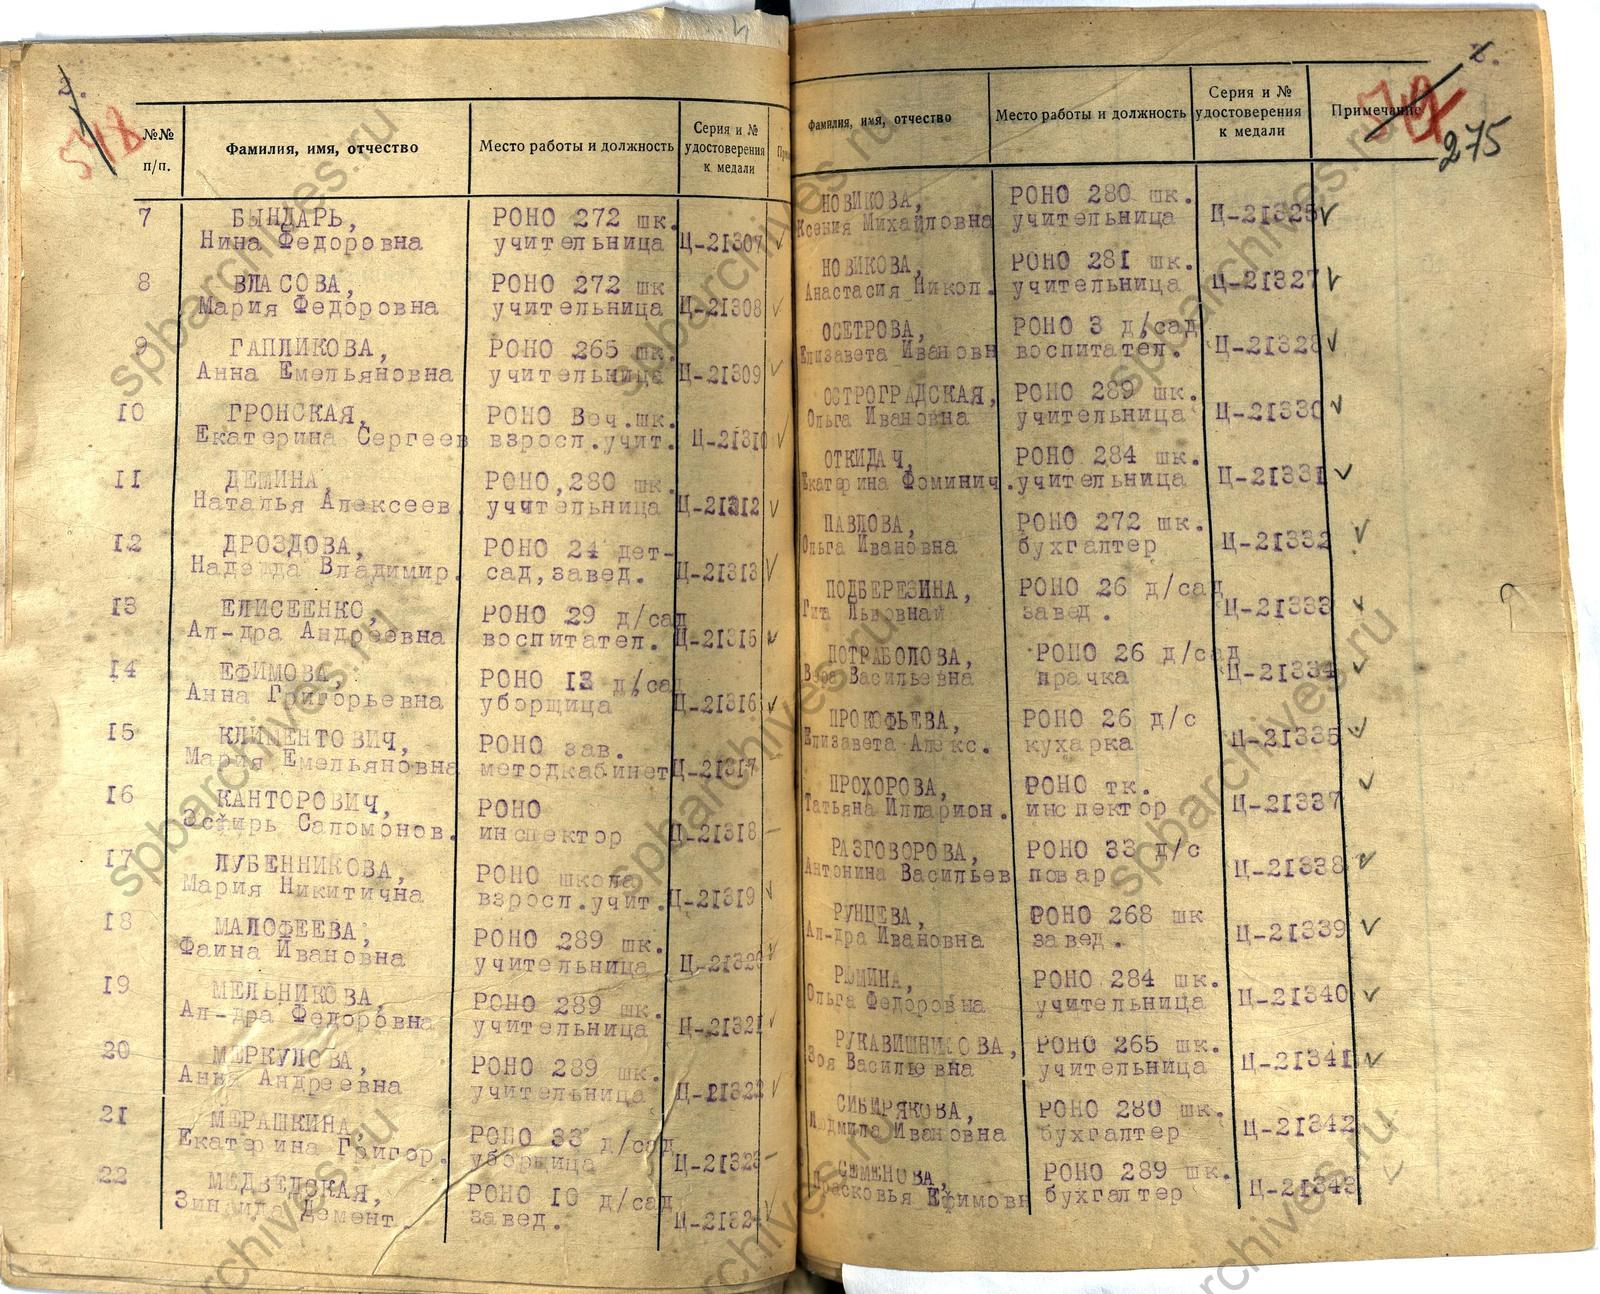 2.
518
№№
п/п.
Фамилия, имя, отчество
Место работы и должность
Серия и №
удостоверения
к медали
7 БЫНДАРЬ, РОНО 272 шк.
Нина Федоровна учительница Ц-21307
8 ВЛАСОВА, РОНО 272 шк
Мария Федоровна учительница Ц-21308
9 ГАПЛИКОВА, РОНО 265 шк.
Анна Емельяновна учительница Ц-21309
10 ГРОНСКАЯ, РОНО Веч.шк.
Екатерина Сергеев взросл.учит. Ц-21310
11 ДЕМИНА, РОНО,280 шк.
Наталья Алексеев. учительница Ц-21312
12 ДРОЗДОВА, РОНО 24 дет-
Надежда Владимир. сад,завед. Ц-21313
13 ЕЛИСЕЕНКО, РОНО 29 д/сад
Ал-дра Андреевна воспитател. Ц-21315
14 ЕФИМОВА, РОНО 13 д/сад
Анна Григорьевна уборщица Ц-21316
15 КЛИМЕНТОВИЧ, РОНО зав.
Мария Емельяновна методкабинет Ц-21317
16 КАНТОРОВИЧ, РОНО
Эсфирь Саломонов. инспектор Ц-21318
17 ЛУБЕННИКОВА, РОНО школа
Мария Никитична взросл.учит. Ц-21319
18 МАЛОФЕЕВА, РОНО 289 шк.
Фаина Ивановна учительница Ц-21320
19 МЕЛЬНИКОВА, РОНО 289 шк.
Ал-дра Федоровна учительница Ц-21321
20 МЕРКУЛОВА, РОНО 289 шк.
Анна Андреевна учительница Ц-21322
21 МЕРАШКИНА, РОНО 33 д/сад
Екатерина Григор. уборщица Ц-21323
22 МЕДВЕДСКАЯ, РОНО 10 д/сад
Зинаида Демент. завед. Ц-21324
275
Фамилия, имя, отчество
Место работы и должность
Серия и №
удостоверения
к медали
Примечание
НОВИКОВА, РОНО 280 шк.
Ксения Михайловна учительница Ц-21325
НОВИКОВА, РОНО 281 шк.
Анастасия Никол. учительница Ц-21327
ОСЕТРОВА, РОНО 3 д/сад
Елизавета Ивановн воспитател. Ц-21328
ОСТРОГРАДСКАЯ, РОНО 289 шк.
Ольга Ивановна учительница Ц-21330
ОТКИДАЧ, РОНО 284 шк.
Екатерина Фоминич. учительница Ц-21331
ПАВЛОВА, РОНО 272 шк.
Ольга Ивановна бухгалтер Ц-21332
ПОДБЕРЕЗИНА, РОНО 26 д/сад
Гита завед. Ц-21333
ПОТРАБОЛОВА, РОНО 26 д/сад
Вера Васильевна прачка Ц-21334
ПРОКОФЬЕВА, РОНО 26 д/с
Елизавета Алекс. кухарка Ц-21335
ПРОХОРОВА, РОНО тк.
Татьяна Илларион. инспектор Ц-21337
РАЗГОВОРОВА, РОНО 33 д/с
Антонина Васильев повар Ц-21338
РУНЦЕВА, РОНО 268 шк
Ал-дра Ивановна завед. Ц-21339
РЮМИНА, РОНО 284 шк.
Ольга Федоровна учительница Ц-21340
РУКАВИШНИКОВА, РОНО 265 шк.
Зоя Васильевна учительница Ц-21341
СИБИРЯКОВА, РОНО 280 шк.
Людмила Ивановна бухгалтер Ц-21342
СЕМЕНОВА, РОНО 289 шк.
Прасковья Ефимовн бухгалтер Ц-21343
spbarchives.ru